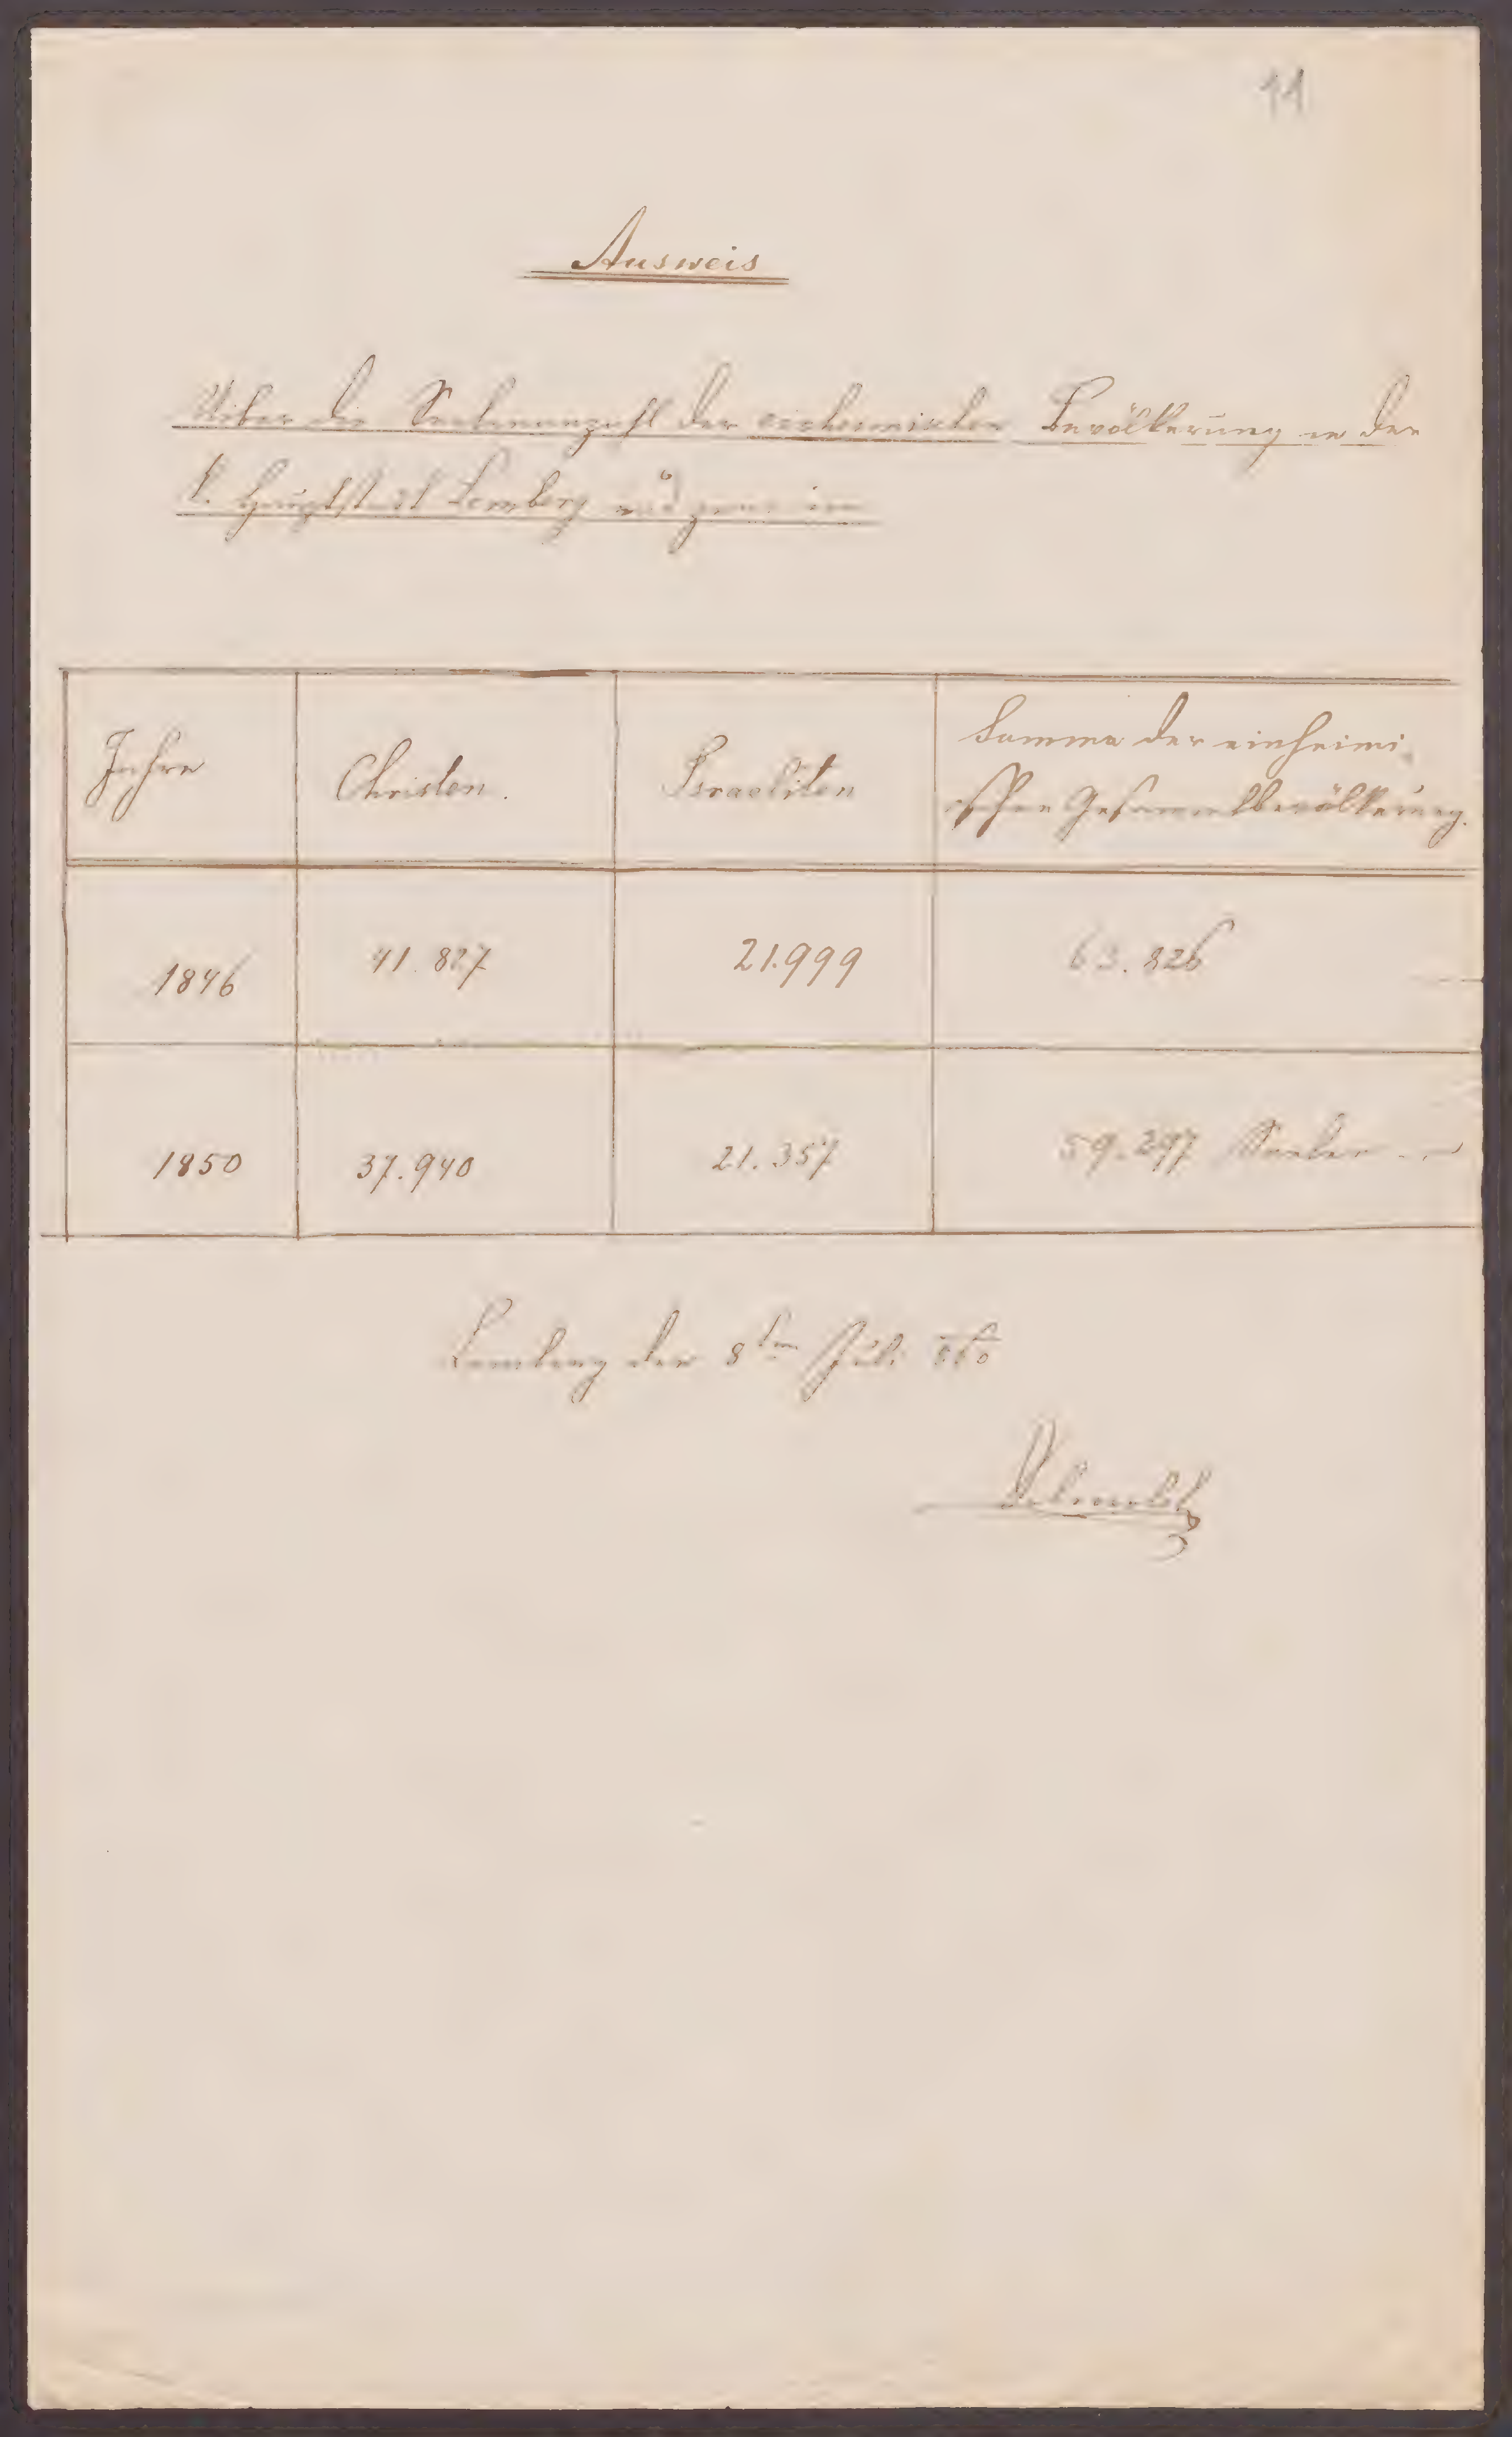 11
Ausweis
Uiber die Seelenanzahl der einheimischen Bevölkerung in der
k. Hauptstadt Lemberg und zwar im
Jahre
Christen.
Israeliten
Summa der einheimi
schen Gesammtbevölkerung.
1846 41.827 21.999 63.826
1850 37.940 21.357 59.297 Seelen
Lemberg den 8ten Juli